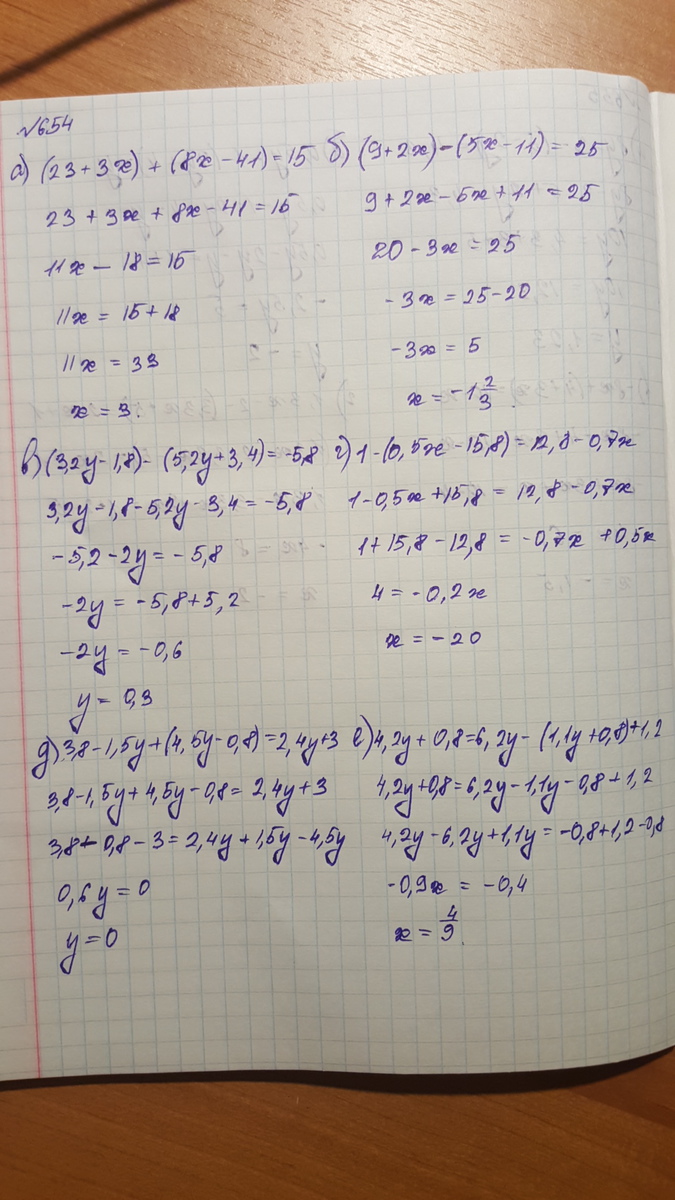 №654
а) (23+3x) + (8x-41)=15
23+3x+8x-41=15
11x-18=15
11x=15+18
11x=33
x=3.
б) (9+2x)-(5x-11)=25
9+2x-5x+11=25
20-3x=25
-3x=25-20
-3x=5
x=-1 2/3.
в) (3,2y-1,8)-(5,2y+3,4)=-5,8
3,2y-1,8-5,2y-3,4=-5,8
-5,2-2y=-5,8
-2y=-5,8+5,2
-2y=-0,6
y=0,3
г) 1-(0,5x-15,8)=12,8-0,7x
1-0,5x+15,8=12,8-0,7x
1+15,8-12,8=-0,7x+0,5x
4=-0,2x
x=-20
д) 3,8-1,5y+(4,5y-0,8)=2,4y+3
3,8-1,5y+4,5y-0,8=2,4y+3
3,8-0,8-3=2,4y+1,5y-4,5y
0,6y=0
y=0
е) 4,2y+0,8=6,2y-(1,1y+0,8)+1,2
4,2y+0,8=6,2y-1,1y-0,8+1,2
4,2y-6,2y+1,1y=-0,8+1,2-0,8
-0,9x=-0,4
x=4/9.